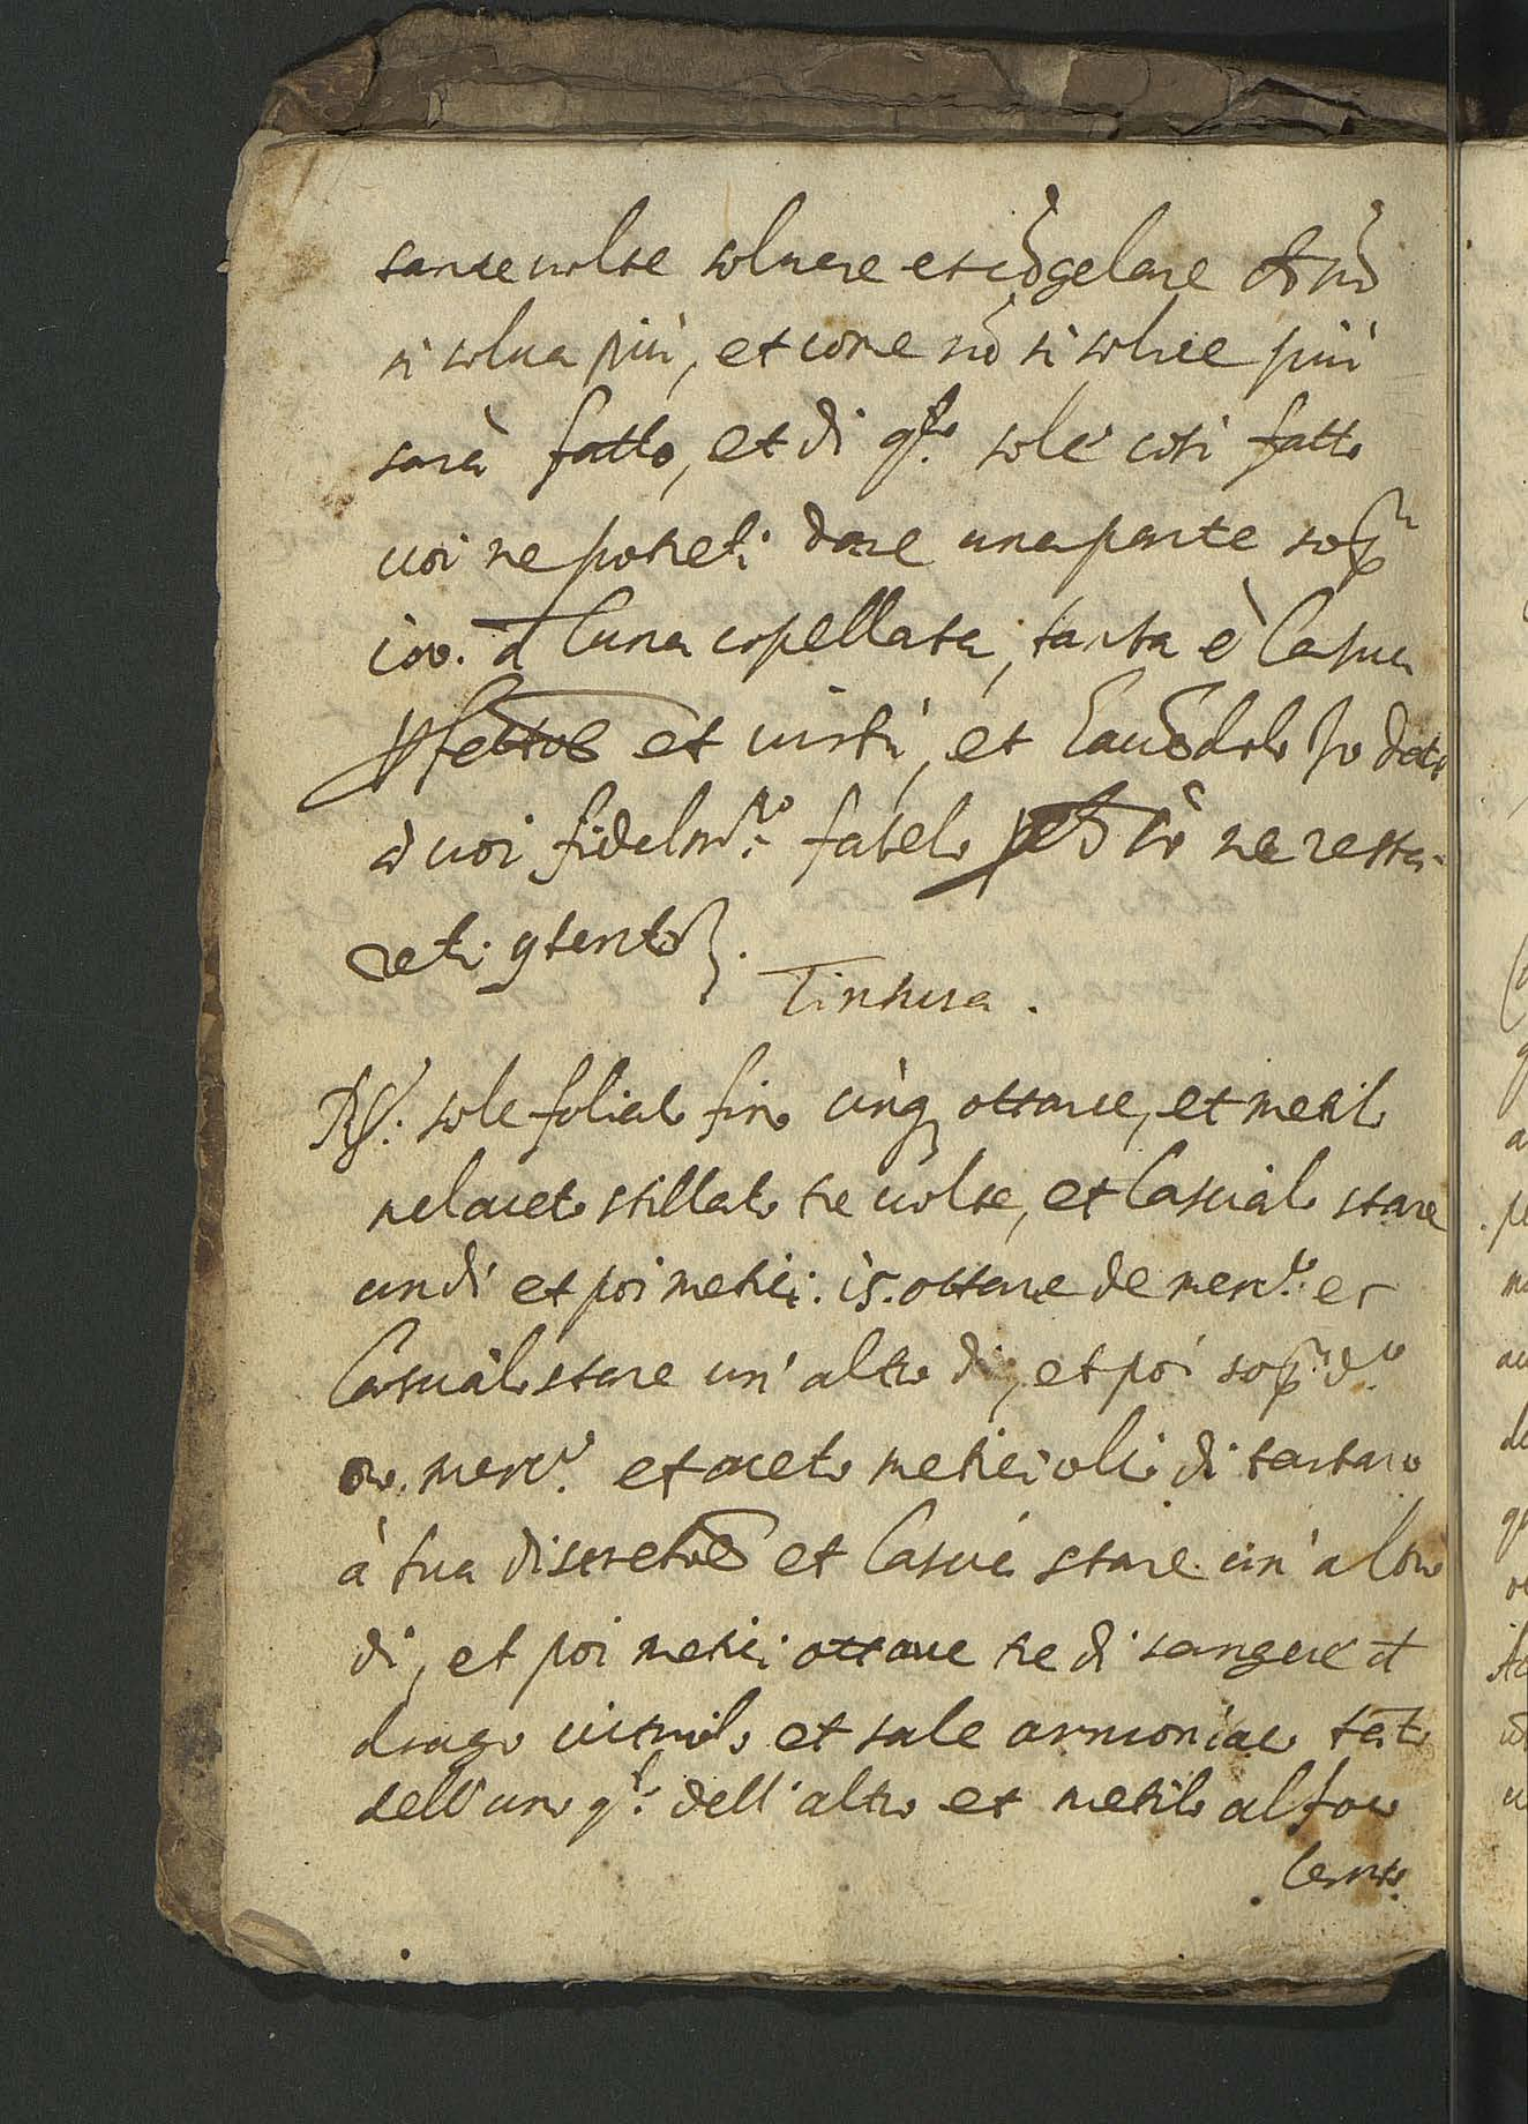 tante volte solvere et cōgelare che nō
si solva più, et come nō si solve più
sarà fatto, et di qsto sole così fatto
voi ne potreti dare una parte sopa
100. d luna copellata, tanta è la sua
pfettioe et virtù, et havēdolo io dato
à voi fidelmte fatelo pchè ne resta-
reti 9tento.
Tintura.
Rx. sole foliato fino cinq ottave, et metilo
nel aceto stillato tre volte, et lascialo stare
un dì et poi metici. 15. ottave de mercº. et
lascialo stare un' altro dì, et poi sopa do
oro. mercº. et aceto metici olio di tartaro
à tua discretioe et lascia stare un' altro
dì, et poi metici ottave tre di sangue d
drago et sale armoniaco tāto
dell' uno qto dell' altro et metilo al foco
lento.